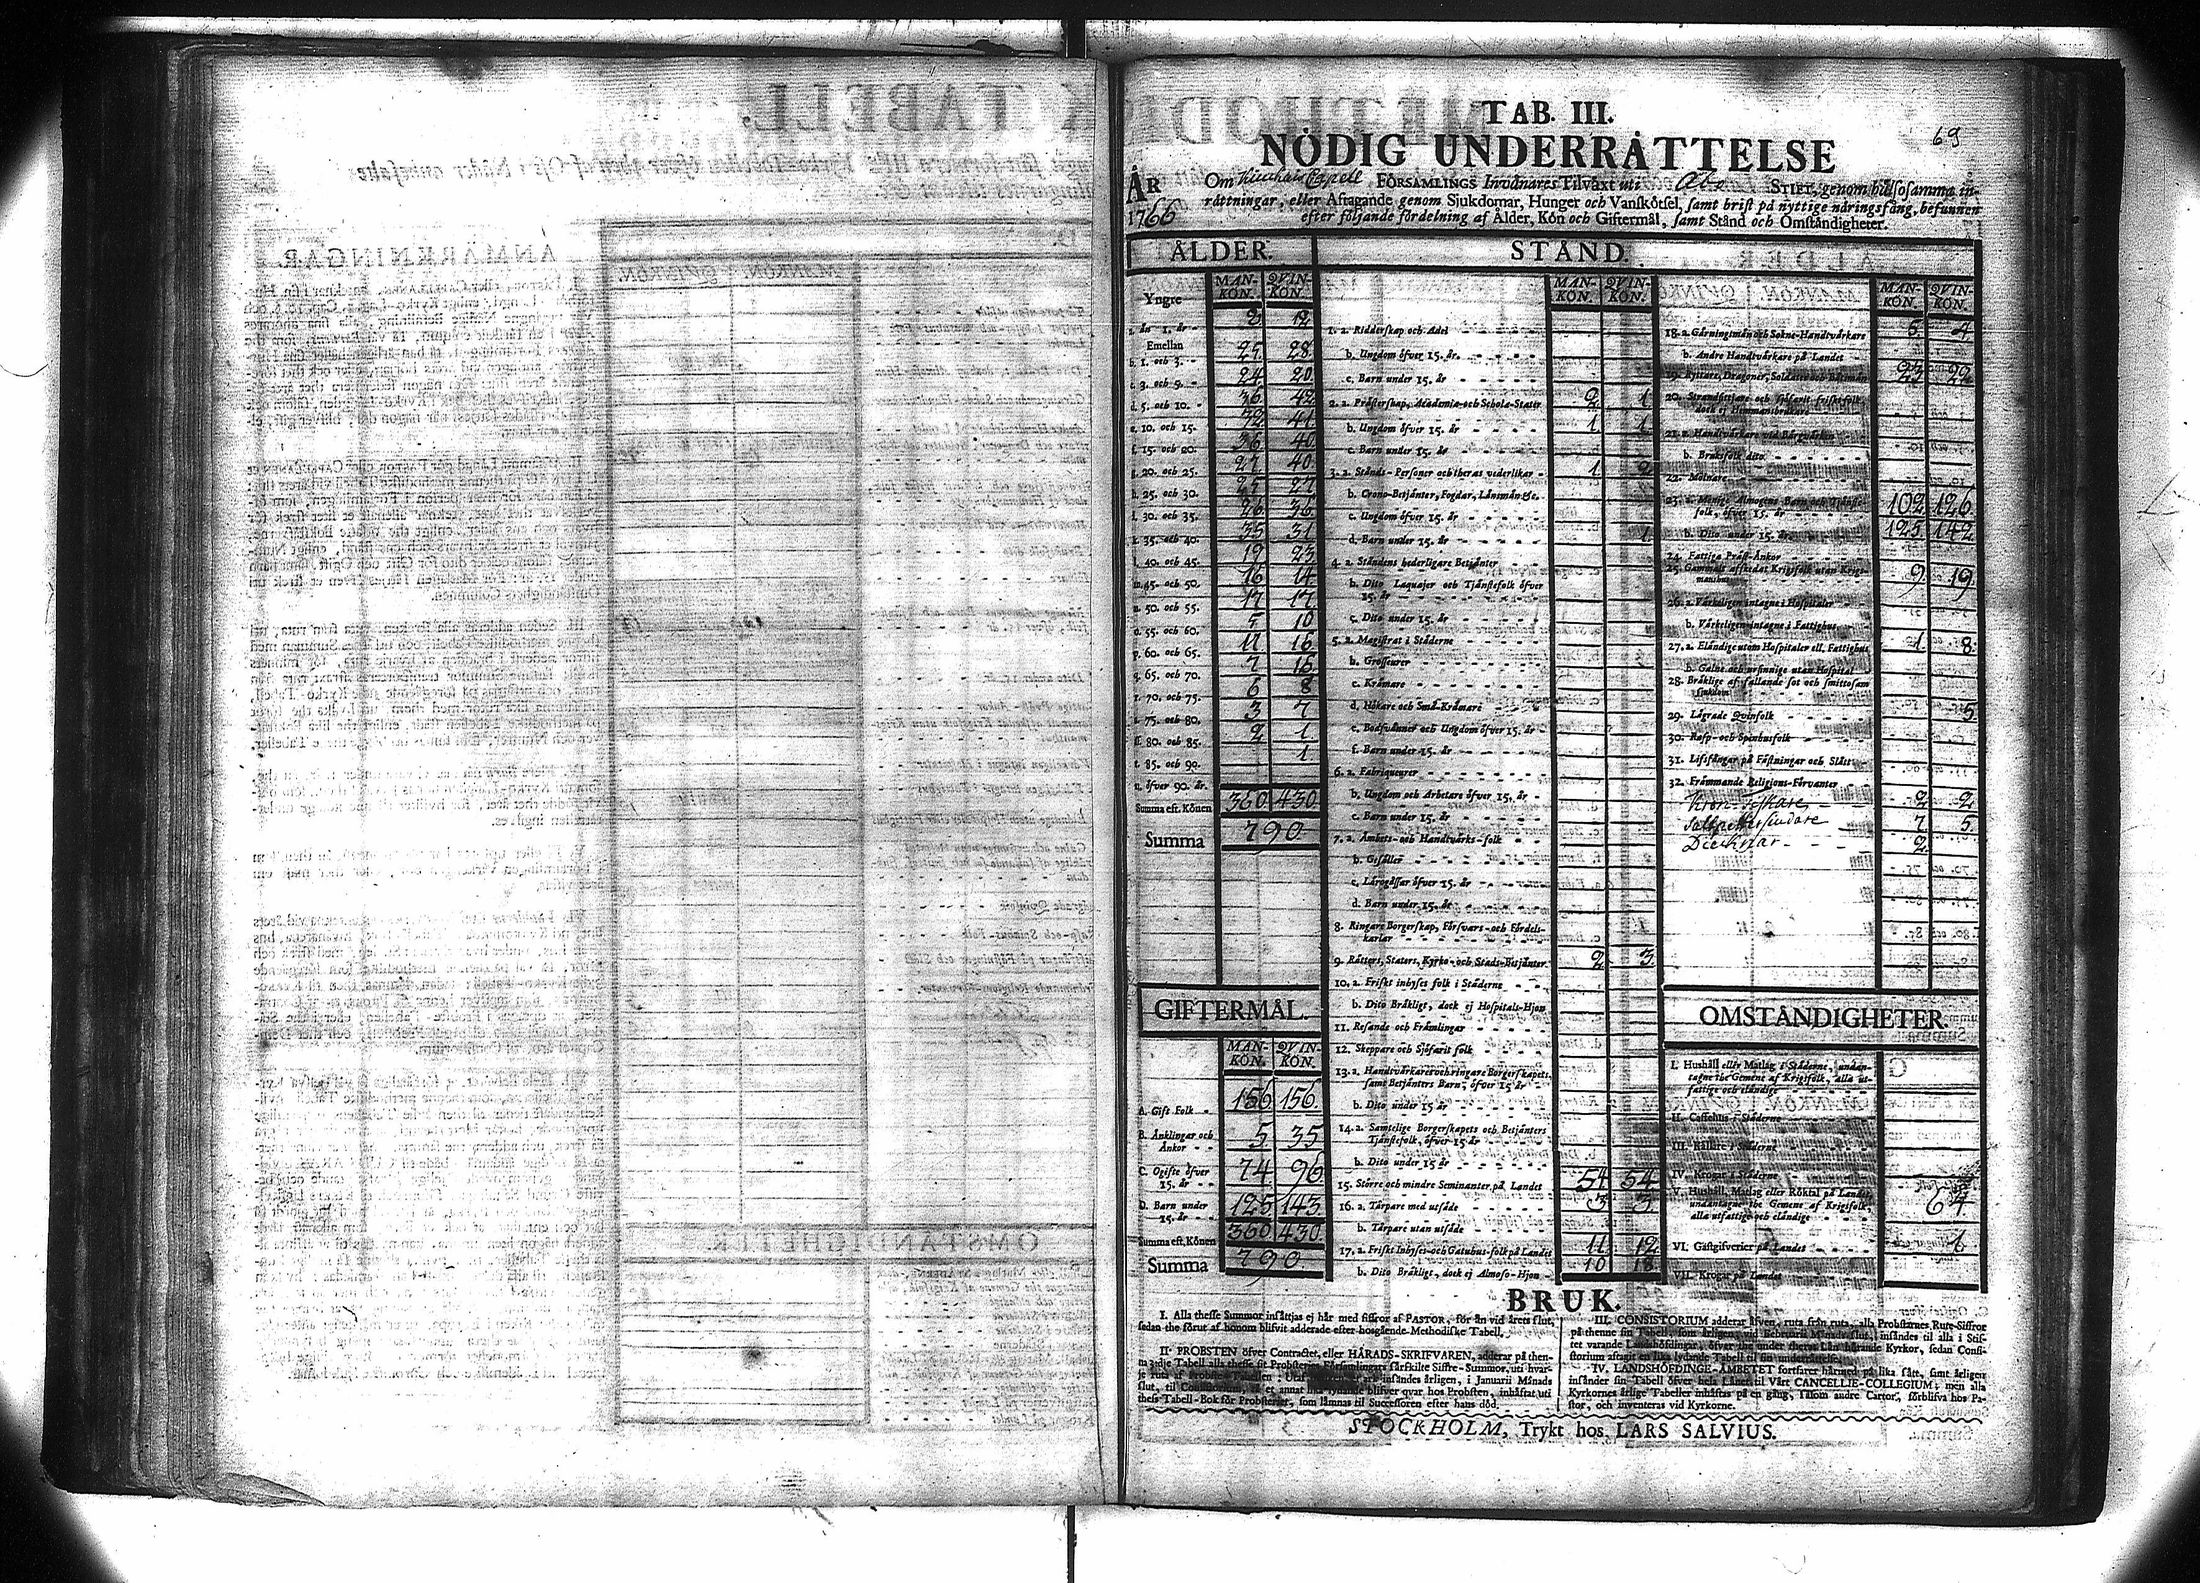 69
TAB. III.
NÖDIG UNDERRÅTTELSE
ÅR 1766
Om Capell FÖRSAMLINGS Invånares Tilväxt uti Åbo STIFT, genom hälsosamma in-
rättningar, eller Aftagande genom Sjukdomar, Hunger och Vanskötsel, samt brist på nyttige näringsfång, befunnen
efter följande fördelning af Ålder, Kön och Giftermål, samt Stånd och Omständigheter.
ÅLDER.
MAN-KÖN. QVIN-KÖN.
Yngre
a. än 1. år 12
Emellan
b. 1. och 3. 25 28
c. 3. och 5. 24 20
d. 5. och 10. 36 42
e. 10. och 15. 32 41
f. 15. och 20. 36 40
g. 20. och 25. 27 40
h. 25. och 30. 25 27
i. 30. och 35. 26 36
k. 35. och 40. 35 31
l. 40. och 45. 19 23
m. 45. och 50. 16 14
n. 50. och 55. 17 17
o. 55. och 60. 5 10
p. 60. och 65. 11 16
q. 65. och 70. 7 15
r. 70. och 75. 6 8
s. 75. och 80. 3 7
ſſ. 80. och 85. 2 1
t. 85. och 90. 1
u. öfver 90. år.
Summa eft. Könen 360 430
Summa 790
GIFTERMÅL.
MAN-KÖN. QVIN-KÖN.
A. Gift Folk 156 156
B. Änklingar och Änkor 5 35
C. Ogifte öfver 15. år 74 96
D. Barn under 15. år 125 143
Summa eft. Könen 360 430
Summa 790
STÅND.
MAN-KÖN. QVIN-KÖN.
1. a. Ridderskap och Adel
b. Ungdom öfver 15. år.
c. Barn under 15. år
2. a. Prästerskap, Academiæ- och Schole-Stater 2 1
b. Ungdom öfver 15. år 1 1
c. Barn under 15. år
3. a. Stånds-Personer och theras vederlikar 1 2
b. Crono-Betjänter, Fogdar, Länsmän &c.
c. Ungdom öfver 15. år
d. Barn under 15. år 1
4. a. Ståndens hederligare Betjänter
b. Dito Laquajer och Tjänstefolk öfver
15. år
c. Dito under 15. år
5. a. Magistrat i Städerne
b. Grosseurer
c. Krämare
d. Hökare och Små-Krämare
e. Bodsvänner och Ungdom öfver 15. år
f. Barn under 15. år
6. a. Fabriqueurer
b. Ungdom och Arbetare öfver 15. år
c. Barn under 15. år
7. a. Ämbets- och Handtvärks-folk
b. Gesäller
c. Lärogåssar öfver 15. år
d. Barn under 15. år
8. Ringare Borgerskap, Försvars- och Fördels-
karlar
9. Rätters, Staters, Kyrko- och Stads-Betjänter 2 3
10. a. Friskt inhyses folk i Städerne
b. Dito Bräkligt, dock ej Hospitals-Hjon
11. Resande och Främlingar
12. Skeppare och Sjöfarit folk
13. a. Handtvärkares och ringare Borgerskapets
samt Betjänters Barn, öfver 15 år
b. Dito under 15 år
14. a. Samtelige Borgerskapets och Betjänters
Tjänstefolk, öfver 15 år
b. Dito under 15 år
15. Större och mindre Seminanter på Landet 54 54
16. a. Tårpare med utsäde 3 3
b. Tårpare utan utsäde
17. a. Friskt Inhyses- och Gatuhus-folk på Landet 11 12
b. Dito Bräkligt, dock ej Almoso-Hjon 10 18
MAN-KÖN. QVIN-KÖN.
18. a. Gärningsmän och Sokne-Handtvärkare 6 4
b. Andre Handtvärkare på Landet
19. Ryttare, Dragoner, Soldater och Båtsmän 23 22
20. Strandsittjare och Sjöfarit friskt folk
dock ej Hemmansbrukare
21. a. Handtvärkare vid Bärgvärken
b. Bruksfolk dito
22. Mölnare
23. a. Menige Almogens Barn och Tjänste-
folk, öfver 15. år 102 126
b. Dito under 15. år 125 142
24. Fattiga Präst-Änkor
25. Gammalt afskedat Krigsfolk utan Krigs-
manshus 9 19
26. a. Värkeligen intagne i Hospitaler
b. Värkeligen intagne i Fattighus
27. a. Eländige utom Hospitaler ell. Fattighus 1 8
b. Galne och ursinnige utom Hospital
28. Bräklige af fallande sot och smittosam
sjukdom
29. Lägrade Qvinfolk 5
30. Rasp- och Spinhusfolk
31. Lifsfångar på Fästningar och Slått
32. Främmande Religions-Förvanter
2 2
7 5
2
OMSTÄNDIGHETER.
I. Hushåll eller Matlag i Städerne, undan-
tagne the Gemene af Krigsfolk, alla ut-
fattige och eländige
II. Caffehus i Städerne
III. Källare i Städerne
IV. Krogar i Städerne
V. Hushåll, Matlag eller Röktal på Landet,
undantagne the Gemene af Krigsfolk,
alla utfattige och eländige 64
VI. Gästgifverier på Landet 1
VII. Krogar på Landet
BRUK.
I. Alla thesse Summor insättjas ej här med siffror af PASTOR, för än vid årets slut,
sedan the förut af honom blifvit adderade efter hosgående Methodiske Tabell.
II. PROBSTEN öfver Contractet, eller HÄRADS-SKRIFVAREN, adderar på then-
na 3:dje Tabell alla thesse sit Probsteries Församlingars särskilte Siffre-Summor, uti hvar-
je ruta af Probste-Tabellen: insändes årligen, i Januarii Månads
slut, til annat lika lydande blifver qvar hos Probsten, inhäftat uti
thess Tabell-Bok för Probsterier, som lämnas til Successoren efter hans död.
III. CONSISTORIUM adderar äfven, ruta från ruta, alla Probstarnes Rute-Siffror
på thenne sin Tabell, som årligen, vid Februarii Månads slut, insändes til alla i Stif-
tet varande Landshöfdingar, öfver the under theras Län hörande Kyrkor, sedan Consi-
storium aftagit en lika lydande Tabell til sin underrättelse.
IV. LANDSHÖFDINGE-ÄMBETET fortfarer härmed på lika sätt, samt årligen
insänder sin Tabell öfver hela Länet til Vårt CANCELLIE-COLLEGIUM; men alla
Kyrkornes årlige Tabeller inhäftas på en gång, såsom andre Cartor, förblifva hos Pa-
stor, och inventeras vid Kyrkorne.
STOCKHOLM, Trykt hos LARS SALVIUS.